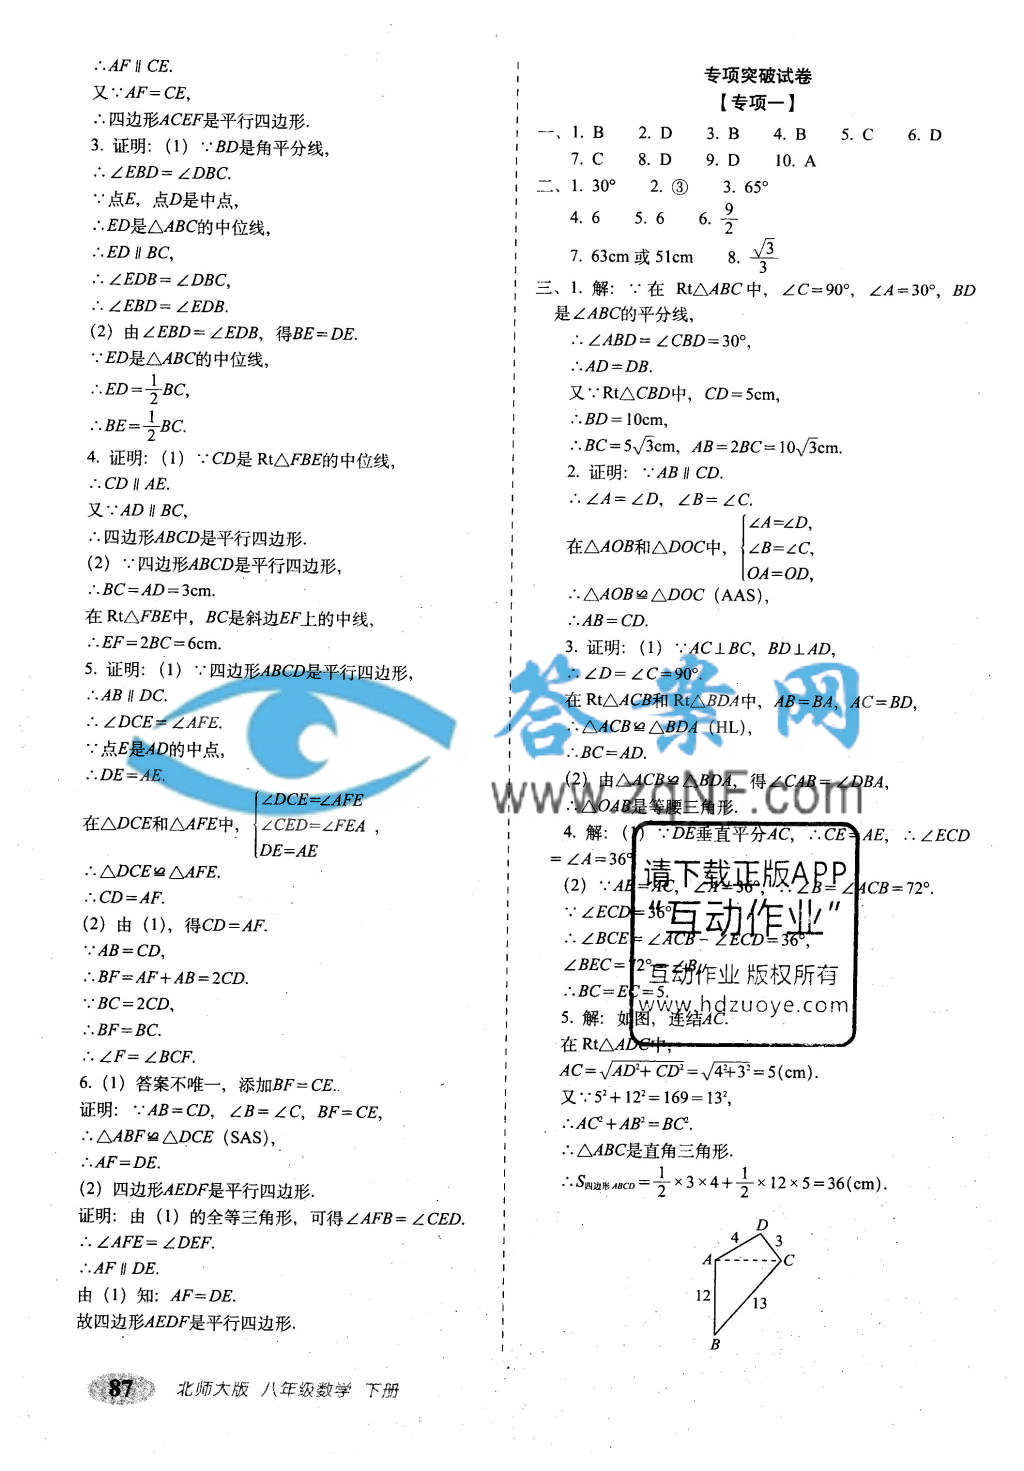 ∴AF∥CE.
又∵AF=CE,
∴四边形ACEF是平行四边形.
3. 证明:(1)∵BD是角平分线,
∴∠EBD=∠DBC.
∵点E，点D是中点,
∴ED是△ABC的中位线,
∴ED∥BC,
∴∠EDB=∠DBC,
∴∠EBD=∠EDB.
(2)由∠EBD=∠EDB，得BE=DE.
∵ED是△ABC的中位线,
∴ED=1/2BC,
∴BE=1/2BC.
4. 证明:(1)∵CD是Rt△FBE的中位线,
∴CD∥AE.
又∵AD∥BC,
∴四边形ABCD是平行四边形.
(2)∵四边形ABCD是平行四边形,
∴BC=AD=3cm.
在Rt△FBE中，BC是斜边EF上的中线,
∴EF=2BC=6cm.
5. 证明:(1)∵四边形ABCD是平行四边形,
∴AB∥DC.
∴∠DCE=∠AFE.
∵点E是AD的中点,
∴DE=AE.
在△DCE和△AFE中，{∠DCE=∠AFE
∠CED=∠FEA,
DE=AE
∴△DCE≌△AFE.
∴CD=AF.
(2)由(1)，得CD=AF.
∵AB=CD,
∴BF=AF+AB=2CD.
∵BC=2CD,
∴BF=BC.
∴∠F=∠BCF.
6.(1)答案不唯一，添加BF=CE.
证明:∵AB=CD，∠B=∠C，BF=CE,
∴△ABF≌△DCE(SAS),
∴AF=DE.
(2)四边形AEDF是平行四边形.
证明:由(1)的全等三角形，可得∠AFB=∠CED.
∴∠AFE=∠DEF.
∴AF∥DE.
由(1)知:AF=DE.
故四边形AEDF是平行四边形.
87 北师大版 八年级数学 下册
专项突破试卷
【专项一】
一、1. B 2. D 3. B 4. B 5. C 6. D
7. C 8. D 9. D 10. A
二、1. 30° 2. ③ 3. 65°
4. 6 5. 6 6. 9/2
7. 63cm或51cm 8. √3/3
三、1. 解:∵在 Rt△ABC中，∠C=90°，∠A=30°，BD
是∠ABC的平分线,
∴∠ABD=∠CBD=30°,
∴AD=DB.
又∵Rt△CBD中，CD=5cm,
∴BD=10cm,
∴BC=5√3cm，AB=2BC=10√3cm.
2. 证明:∵AB∥CD.
∴∠A=∠D，∠B=∠C.
在△AOB和△DOC中，{∠A=∠D,
∠B=∠C,
OA=OD,
∴△AOB≌△DOC(AAS),
∴AB=CD.
3. 证明:(1)∵AC⊥BC，BD⊥AD,
∴∠D=∠C=90°.
在Rt△ACB和Rt△BDA中，AB=BA，AC=BD,
∴△ACB≌△BDA(HL),
∴BC=AD.
(2)由△ACB≌△BDA，得∠CAB=∠DBA,
∴△OAB是等腰三角形.
4. 解:(1)∵DE垂直平分AC，∴CE=AE，∴∠ECD
=∠A=36°
(2)∵AB=AC，∠A=36°，∴∠B=∠ACB=72°.
∵∠ECD=36°
∴∠BCE=∠ACB-∠ECD=36°,
∠BEC=72°=∠B,
∴BC=EC=5.
5. 解:如图，连结AC.
在Rt△ADC中,
AC=√AD²+CD²=√4²+3²=5(cm).
又∵5²+12²=169=13²,
∴AC²+AB²=BC².
∴△ABC是直角三角形.
∴S四边形ABCD=1/2×3×4+1/2×12×5=36(cm).
D
4 3
A C
12
13
B
答案网
www.zqNF.com
请下载正版APP
“互动作业”
互动作业 版权所有
www.hdzuoye.com